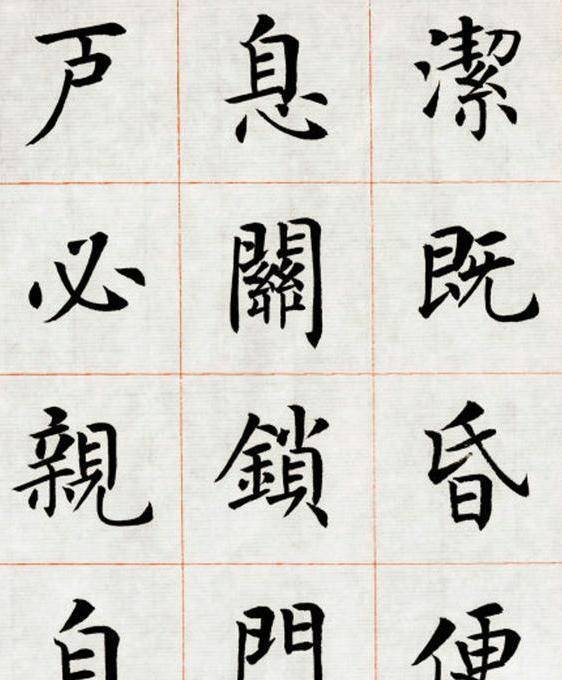 潔既昏便
息關鎖門
戶必親自